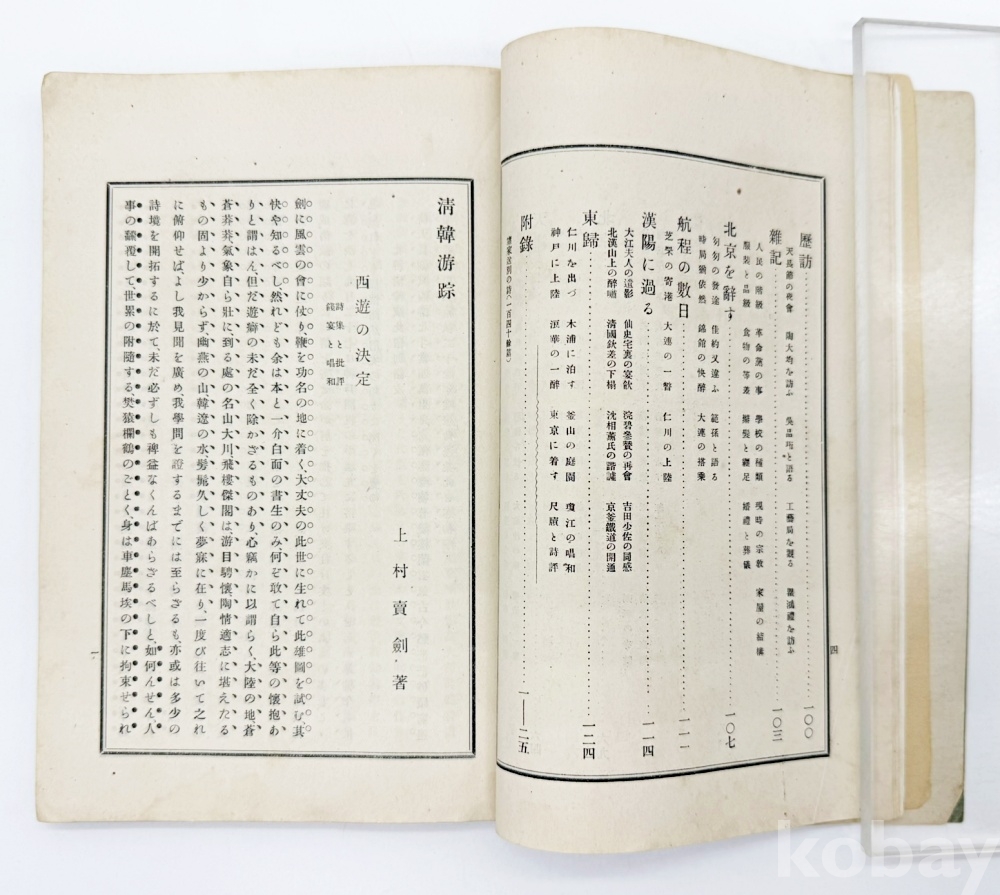 歷訪……一〇〇
雜記……一〇三
人民の階級　革命黨の事　學校の種類　現時の宗教　家屋の結構
服裝と品級　食物の等差　辮髮と纒足　婚禮と葬儀
北京を辭す……一〇七
匆匆の發途　佳約又違ふ　範孫と語る
時局猶依然　錦館の快醉　大連の搭乘
航程の數日……一一一
芝罘の寄港　大連の一瞥　仁川の上陸
漢陽に過る……一一四
大江夫人の遺影　仙史宅裏の宴飮　浣碧參贊の再會　吉田少佐の同感
北漢山上の醉嘯　淸國欽差の下榻　沈相薰氏の諧謔　京釜鐵道の開通
東歸……一二四
仁川を出づ　木浦に泊す　釜山の庭園　瓊江の唱和
神戶に上陸　浪華の一醉　東京に着す　尺牘と詩評
附錄……一—二五
四
淸韓游踪
上村賣劍著
西遊の決定
詩集と批評
餞宴と唱和
劍に風雲の會に仗り、鞭を功名の地に着く、大丈夫の此世に生れて此雄圖を試む、其
快や知るべし、然れども余は本と一介白面の書生のみ何ぞ敢て自ら此等の懷抱あ
りと謂はん、但だ遊癖の未だ全く除かざるものあり、心竊かに以謂らく、大陸の地、蒼
蒼莽莽、氣象自ら壯に、到る處の名山大川、飛樓傑閣は、游目騁懷、陶情適志に堪えたる
もの固より少からず、幽燕の山韓遼の水、髣髴久しく夢寐に在り、一度び往いて之れ
に俯仰せば、よし我見聞を廣め、我學問を證するまでには至らざるも、亦或は多少の
詩境を開拓するに於て、未だ必ずしも裨益なくんばあらざるべしと、如何んせん、人
事の飜覆して、世累の附隨する、焚猿欄鶴のごとく、身は車塵馬埃の下に拘束せられ
一
kobay